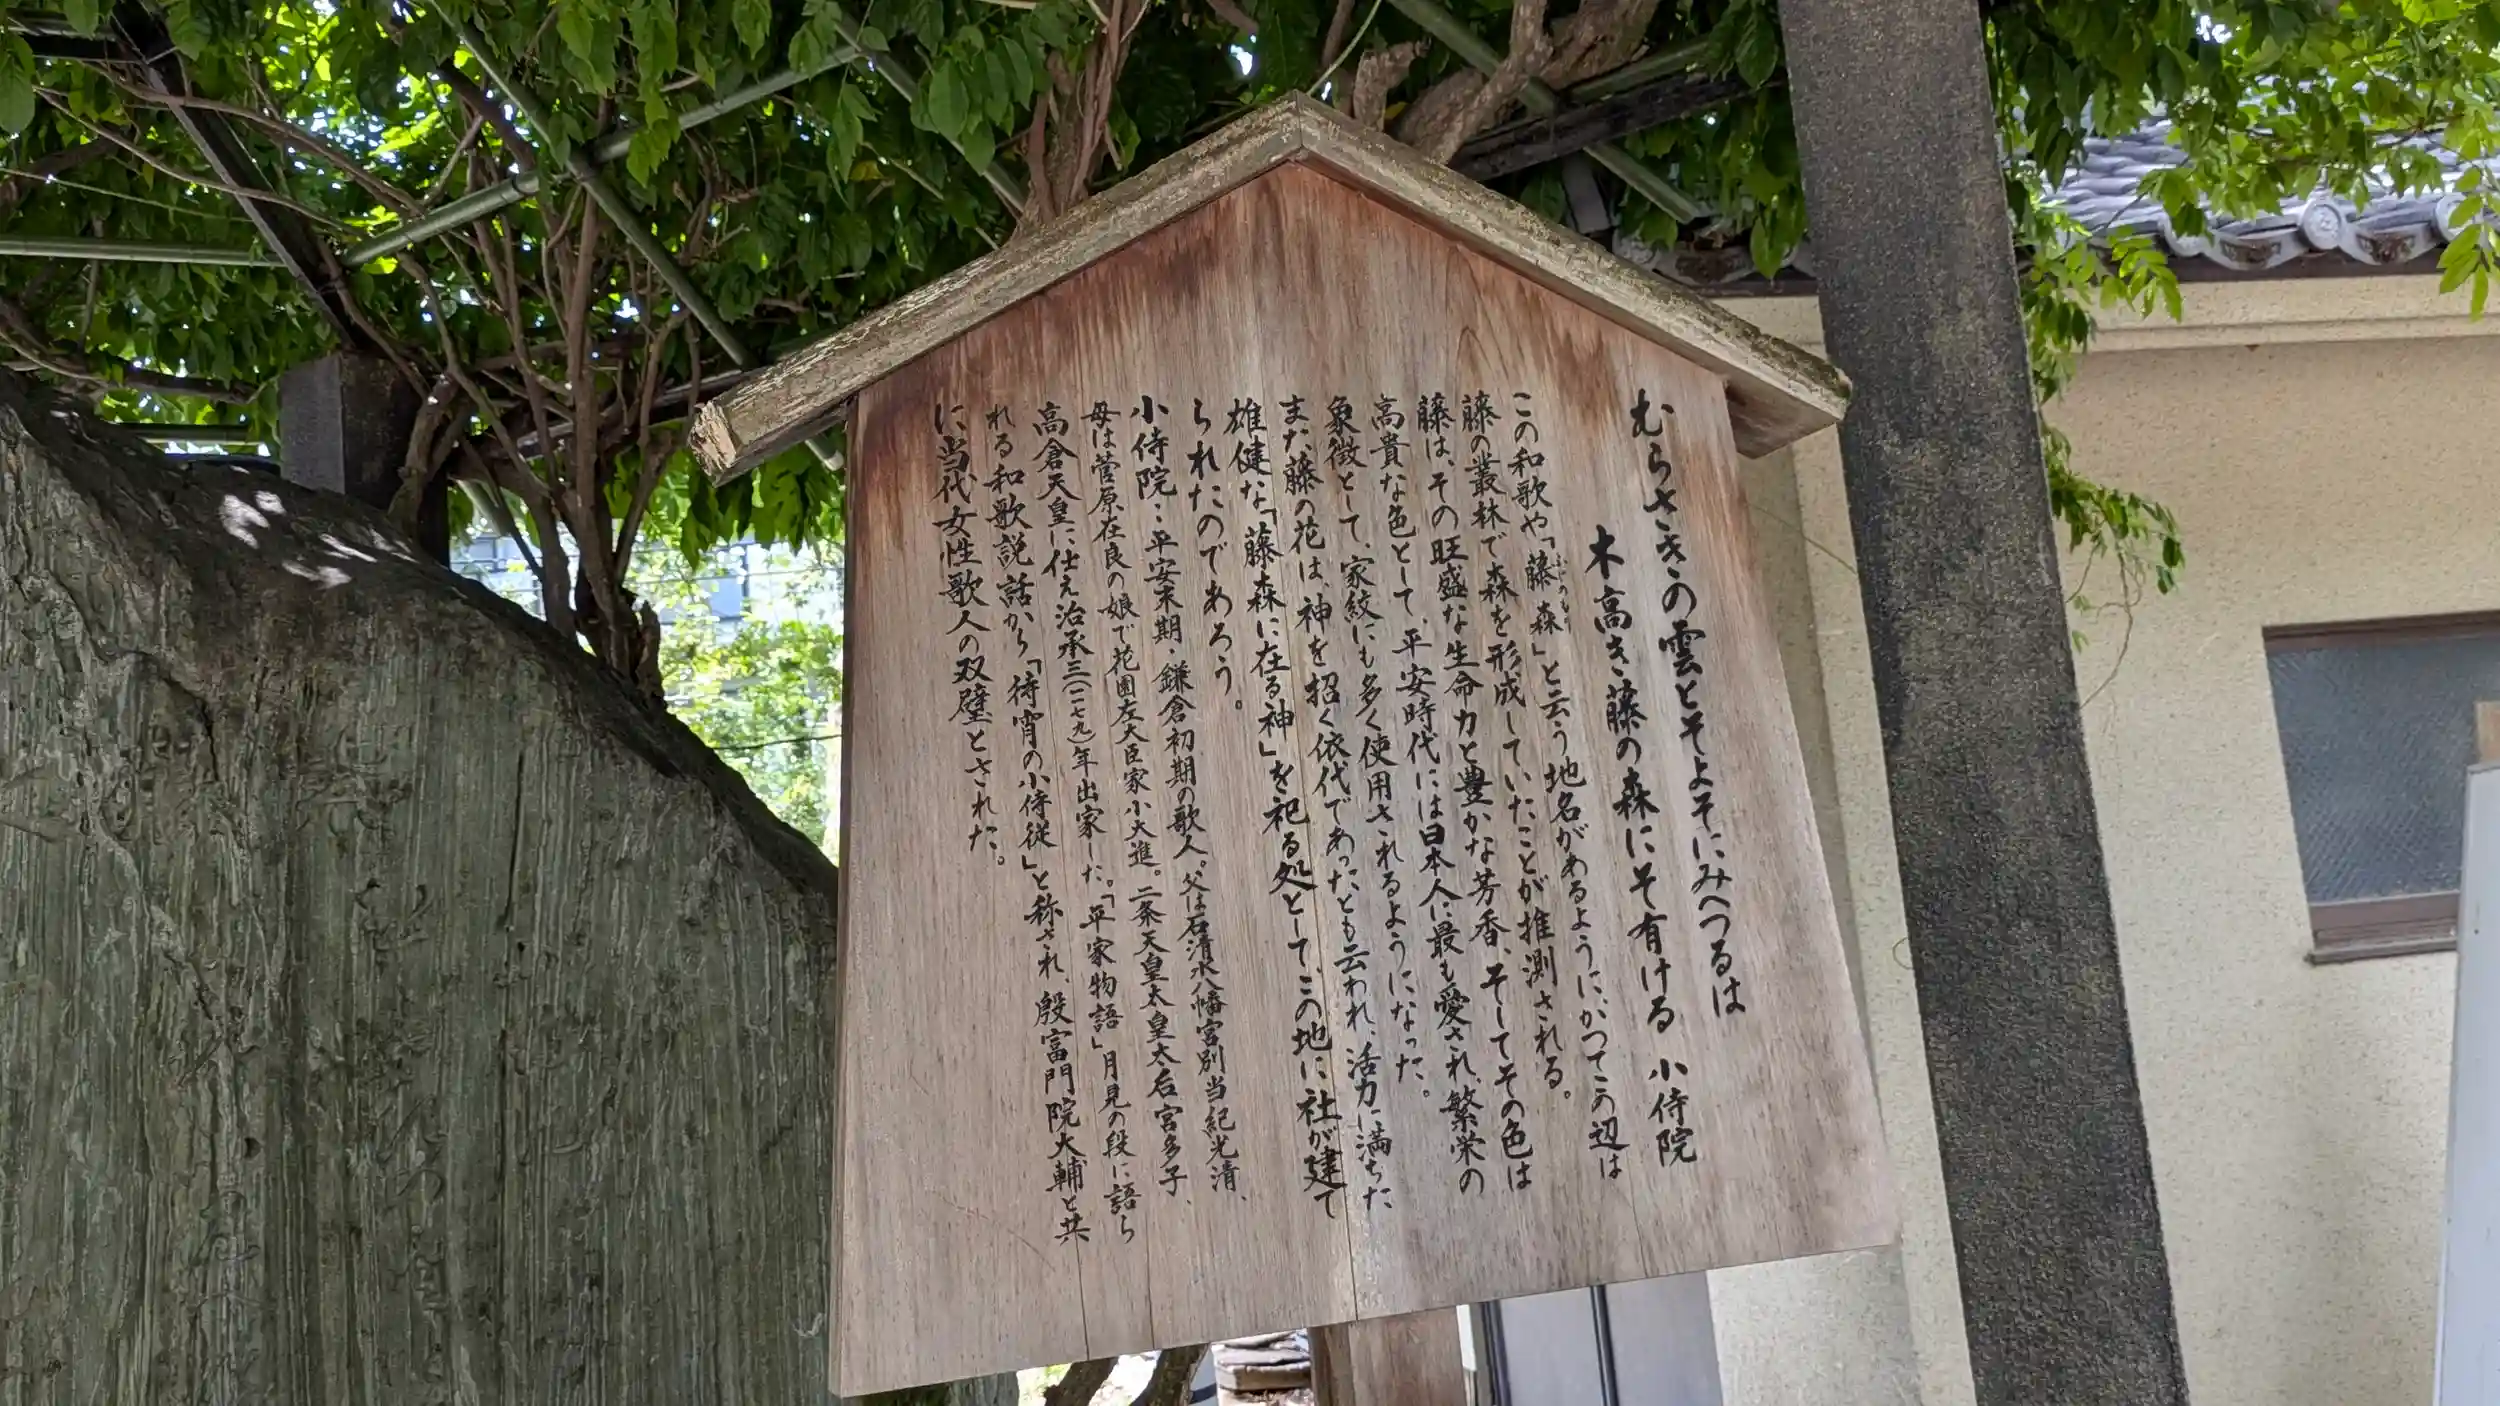 むらさきの雲とそよそにみへつるは
木高き藤の森にそ有ける 小侍院
この和歌や「藤森」と云う地名があるようにかつてこの辺は
ふじのもり
藤の叢林で森を形成していたことが推測される。
藤は、その旺盛な生命力と豊かな芳香、そしてその色は
高貴な色として、平安時代には日本人に最も愛され、繁栄の
象徴として、家紋にも多く使用されるようになった。
また藤の花は、神を招く依代であったとも云われ、活力に満ちた
雄健な「藤森に在る神」を祀る処として、この地に社が建て
られたのであろう。
小侍院:平安末期・鎌倉初期の歌人。父は石清水八幡宮別当紀光清、
母は菅原在良の娘で花園左大臣家小大進。二条天皇太皇太后宮多子、
高倉天皇に仕え治承三(一一七九)年出家した。「平家物語」月見の段に語ら
れる和歌説話から「待宵の小侍従」と称され、殷富門院大輔と共
に当代女性歌人の双璧とされた。